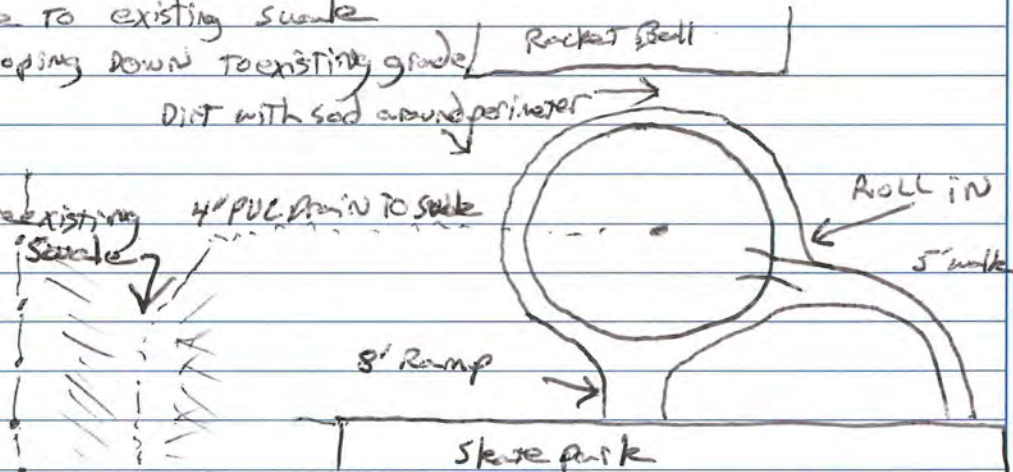 e to existing swale
oping Down to existing grade
Racket Ball
Dirt with sod around perimeter
existing
Swale
4" PVC Drain To Swale
Roll in
5' walk
8' Ramp
Skate park